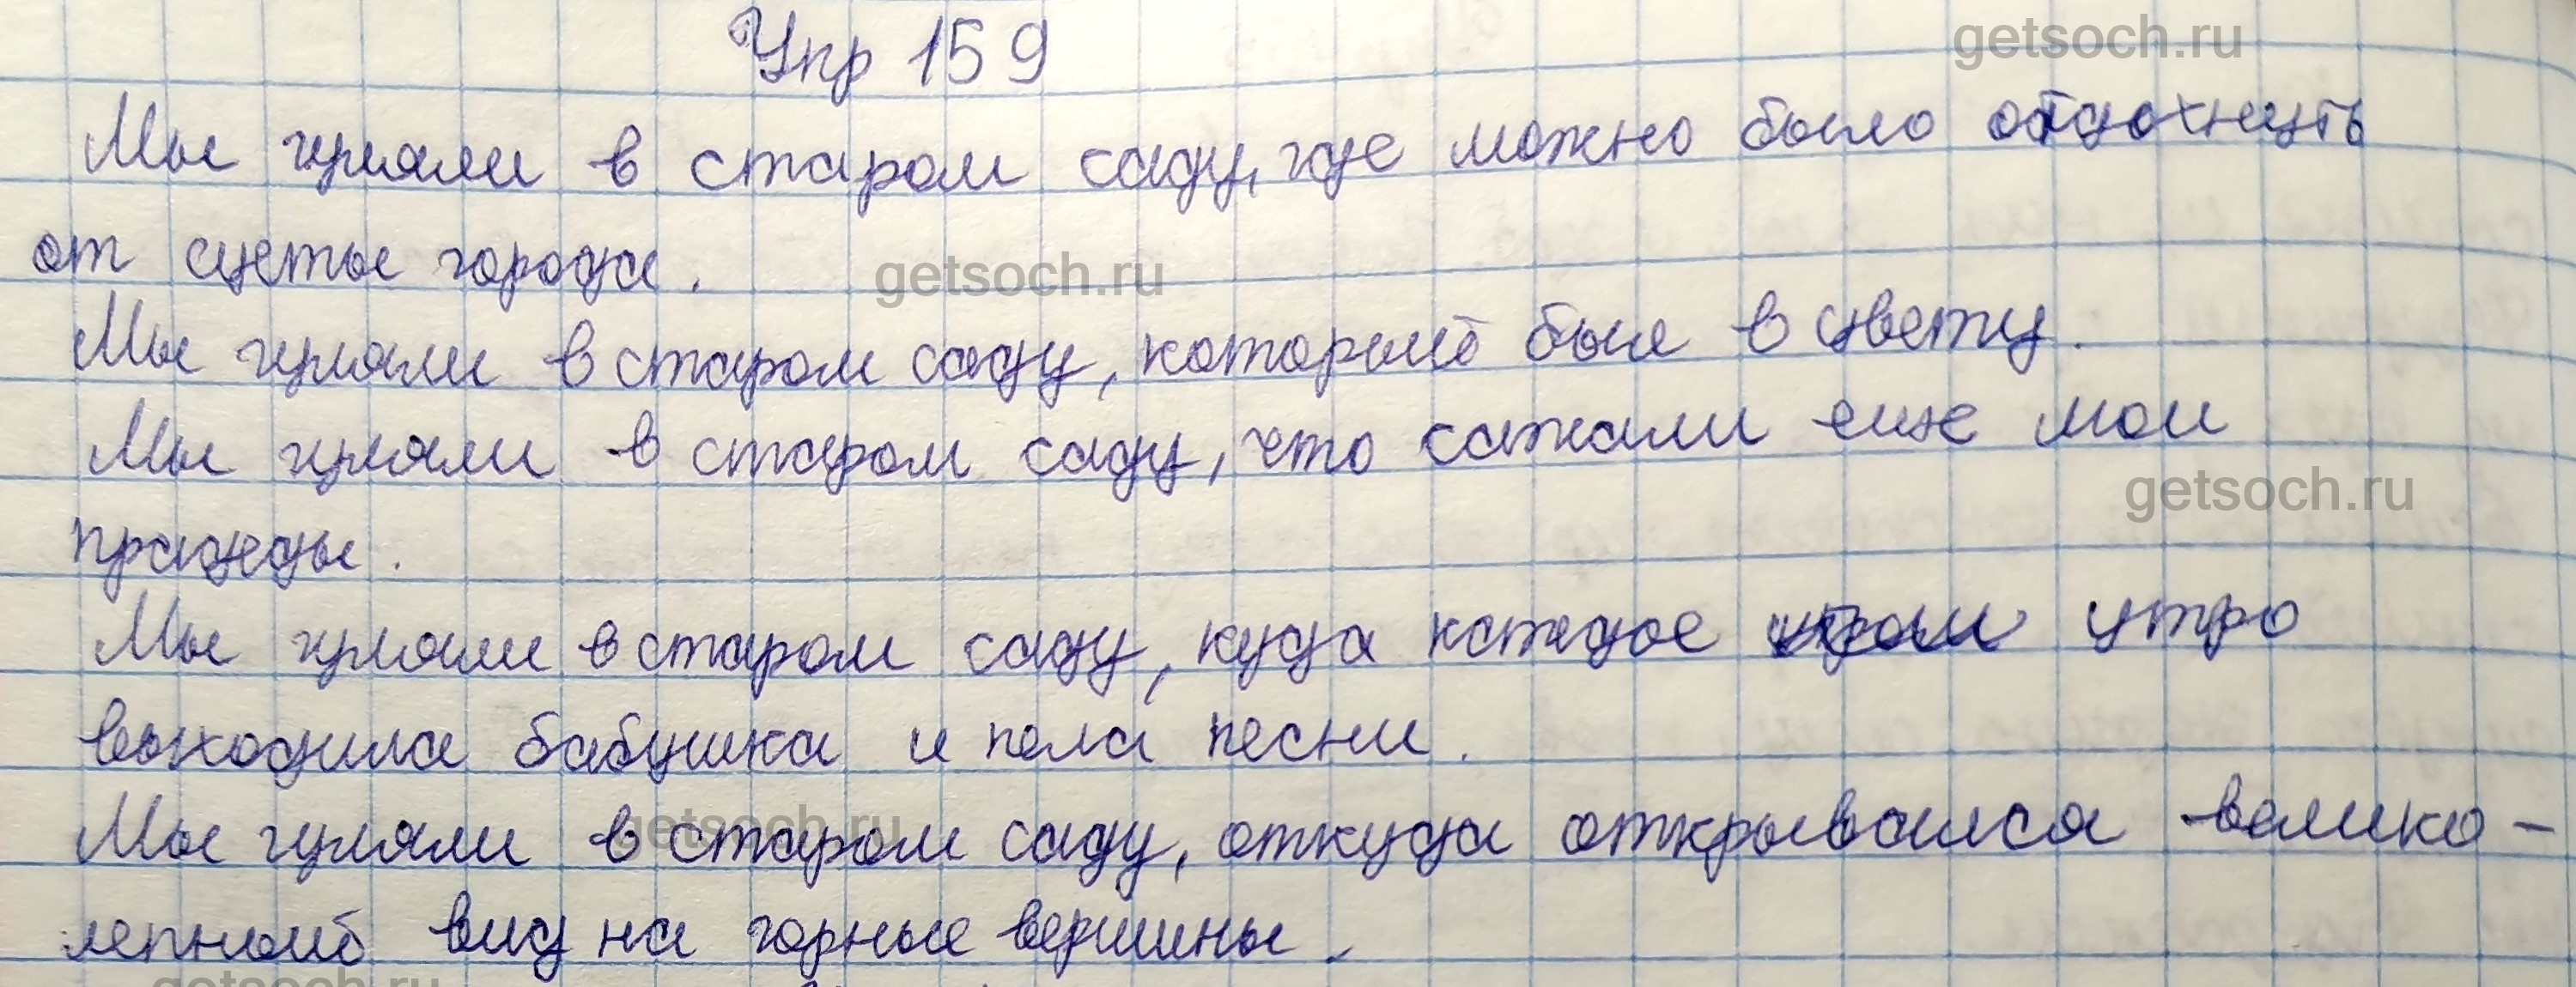 Упр 159
getsoch.ru
Мы гуляли в старом саду, где можно было отдохнуть
от суеты города.
getsoch.ru
Мы гуляли в старом саду, который был в цвету.
Мы гуляли в старом саду, что сажали еще мои
getsoch.ru
прадеды.
Мы гуляли в старом саду, куда каждое утро
выходила бабушка и пела песни.
getsoch.ru
Мы гуляли в старом саду, откуда открывался велико-
лепный вид на горные вершины.
getsoch.ru